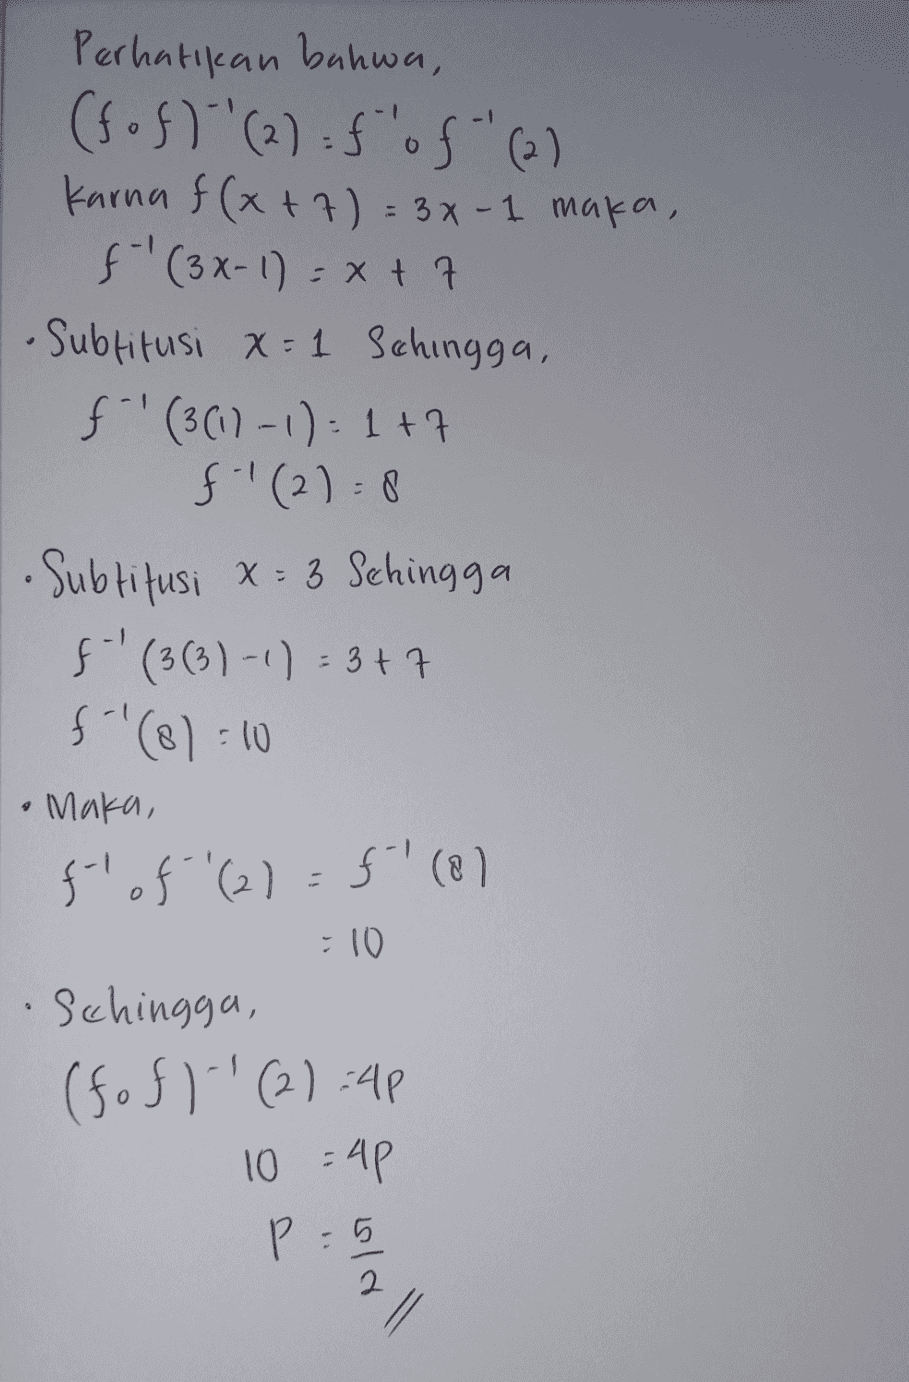 Perhatikan bahwa,
(f∘f)⁻¹(2) = f⁻¹∘f⁻¹(2)
Karna f(x+7) = 3x-1 maka,
f⁻¹(3x-1) = x+7
• Subtitusi x=1 Sehingga,
f⁻¹(3(1)-1) = 1+7
f⁻¹(2) = 8
• Subtitusi x=3 Sehingga
f⁻¹(3(3)-1) = 3+7
f⁻¹(8) = 10
• Maka,
f⁻¹∘f⁻¹(2) = f⁻¹(8)
= 10
• Sehingga,
(f∘f)⁻¹(2) = 4p
10 = 4p
P = 5/2 //